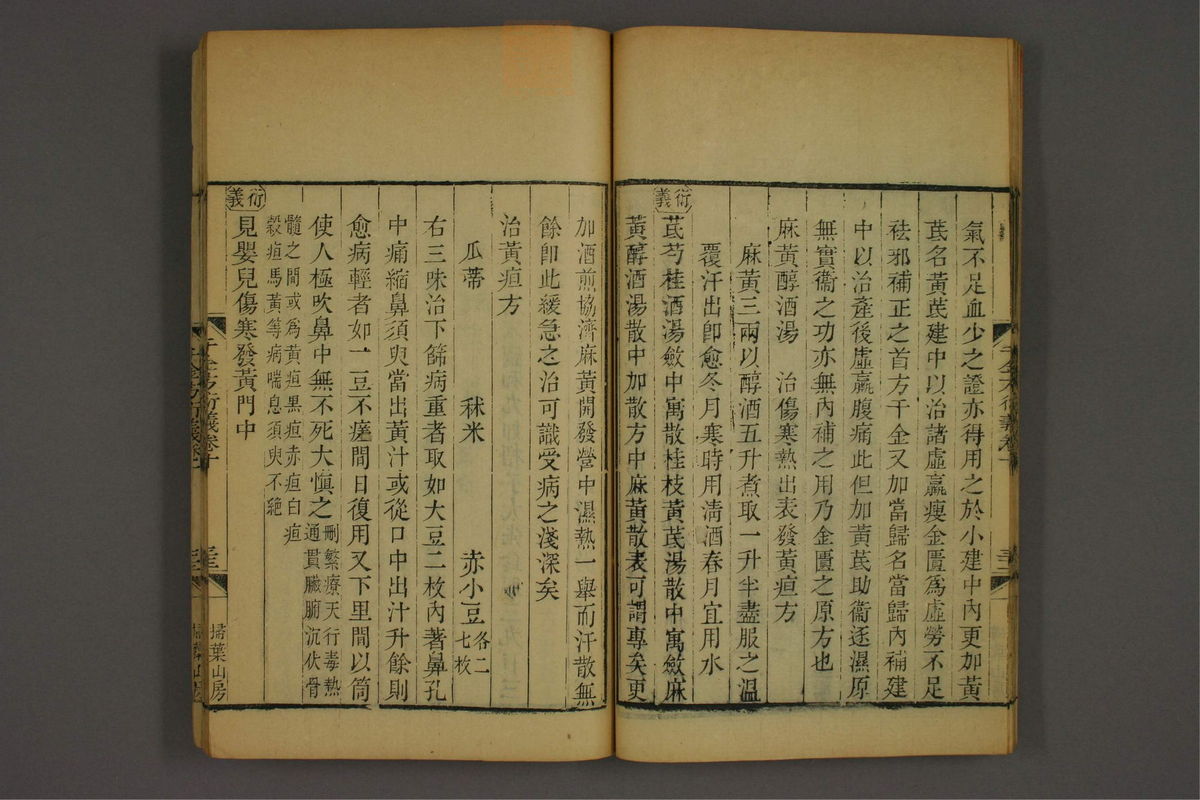 氣不足血少之證亦得用之於小建中內更加黃
芪名黃芪建中以治諸虛羸瘦金匱為虛勞不足
祛邪補正之首方千金又加當歸名當歸內補建
中以治產後虛羸腹痛此但加黃芪助衞逐濕原
無實衞之功亦無內補之用乃金匱之原方也
麻黃醇酒湯 治傷寒熱出表發黃疸方
麻黃三兩以醇酒五升煮取一升半盡服之温
覆汗出卽愈冬月寒時用淸酒春月宜用水
衍義
芪芍桂酒湯斂中寓散桂枝黃芪湯散中寓斂麻
黃醇酒湯散中加散方中麻黃散表可謂專矣更
加酒煎協濟麻黃開發營中濕熱一舉而汗散無
餘卽此緩急之治可識受病之淺深矣
治黃疸方
瓜蒂 秫米 赤小豆各二七枚
右三味治下篩病重者取如大豆二枚內著鼻孔
中痛縮鼻須臾當出黃汁或從口中出汁升餘則
愈病輕者如一豆不瘥間日復用又下里間以筒
使人極吹鼻中無不死大慎之刪繁療天行毒熱通貫臟腑沉伏骨
髓之間或為黃疸黑疸赤疸白疸
穀疸馬黃等病喘息須臾不絕
衍義
見嬰兒傷寒發黃門中
千金方衍義卷十
三十二
掃葉山房